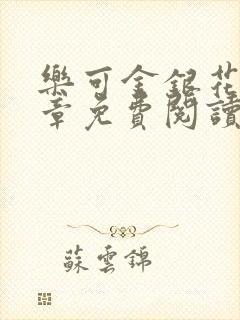 樂可金銀花
章免費閱讀
蘇雲錦